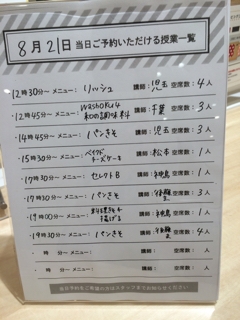 8月21日 当日ご予約いただける授業一覧
12時30分〜 メニュー: リッシュ 講師: 児玉 空席数: 4人
12時45分〜 メニュー: Washoku4 和の調味料 講師: 千葉 空席数: 3人
14時45分〜 メニュー: パンきそ 講師: 児玉 空席数: 3人
15時30分〜 メニュー: ベイクドチーズケーキ 講師: 松本 空席数: 1人
17時30分〜 メニュー: セレクトB 講師: 空席数: 1人
17時30分〜 メニュー: パンきそ 講師: 空席数: 3人
19時00分〜 メニュー: 料理きそ 揚げる 講師: 空席数: 1人
19時30分〜 メニュー: パンきそ 講師: 空席数: 4人
時 分〜 メニュー: 講師: 空席数: 人
時 分〜 メニュー: 講師: 空席数: 人
当日予約をご希望の方はスタッフまでお知らせください